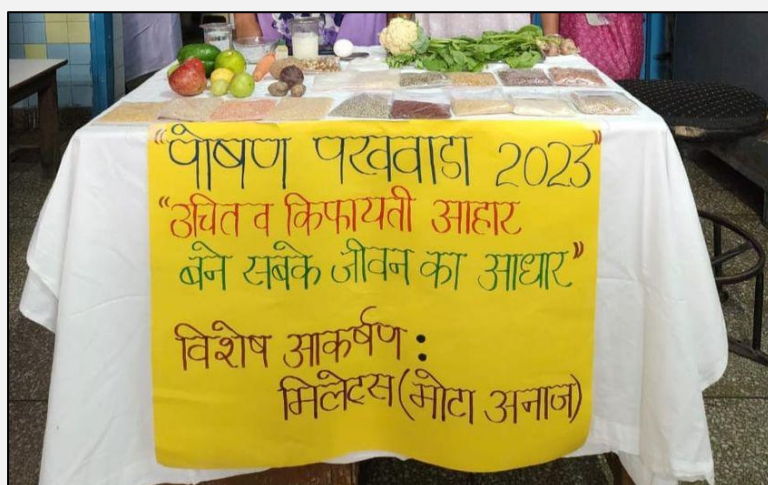 "पोषण परववाडा 2023"
"उचित व किफायती आहार
बने सबके जीवन का आधार"
विशेष आकर्षण :
मिलेट्स (मोटा अनाज)